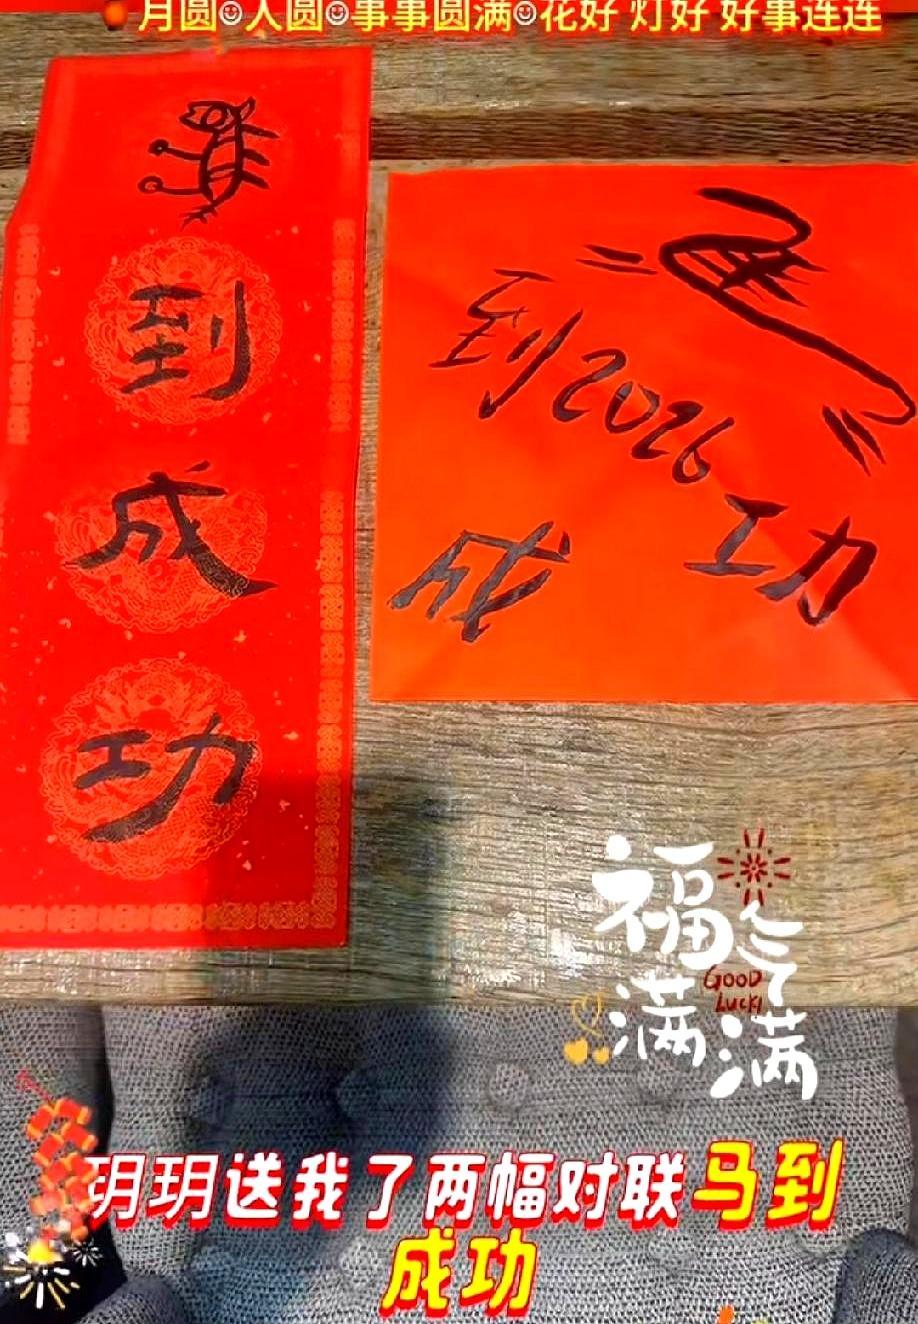 月圆☺人圆☺事事圆满☺花好 灯好 好事连连
到成功
到2026
成功
福气
满满
GOOD
LUCK!
玥玥送我了两幅对联马到
成功